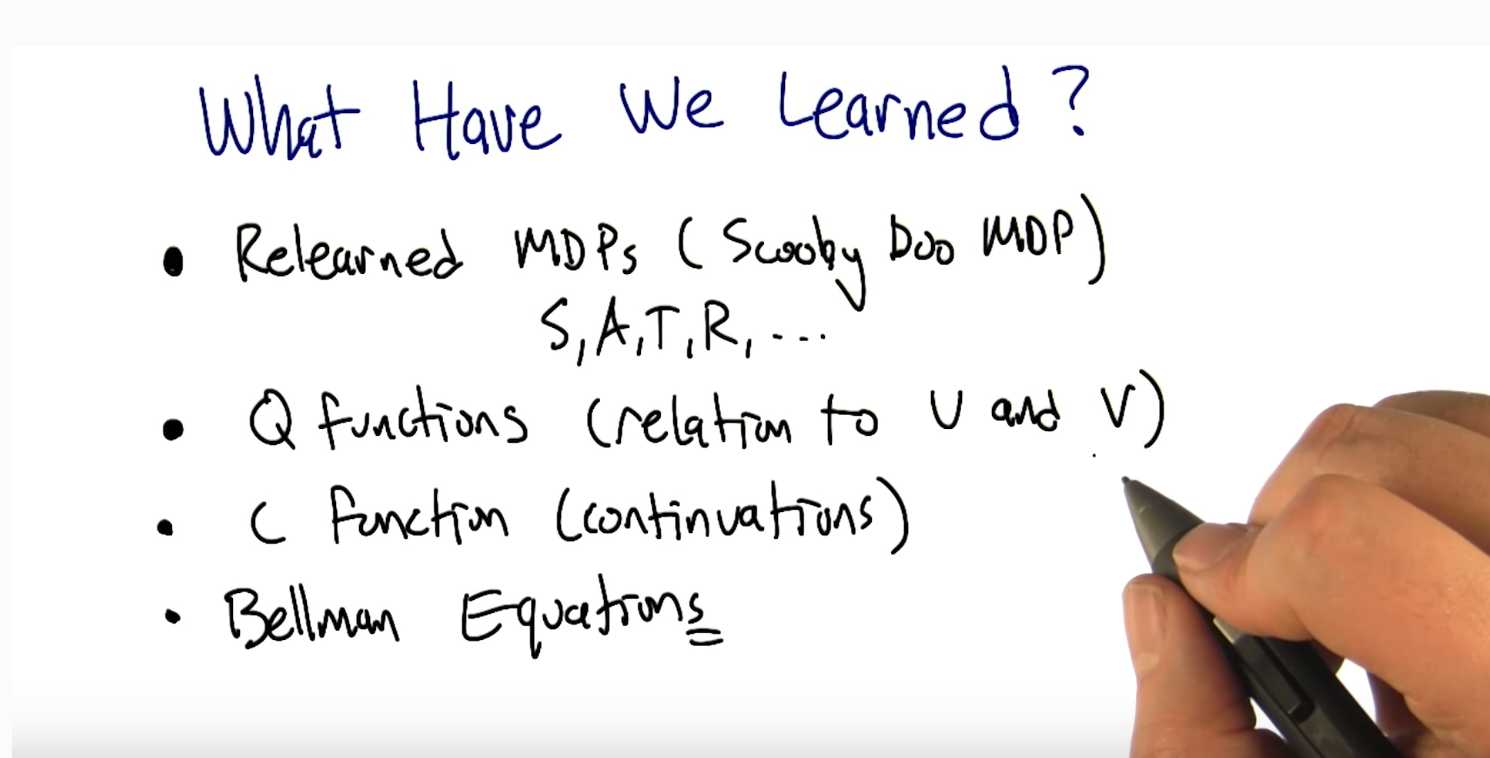 What Have We Learned?
• Relearned MDPs (Scooby Doo MDP)
S, A, T, R, ...
• Q functions (relation to U and V)
• C function (continuations)
• Bellman Equations